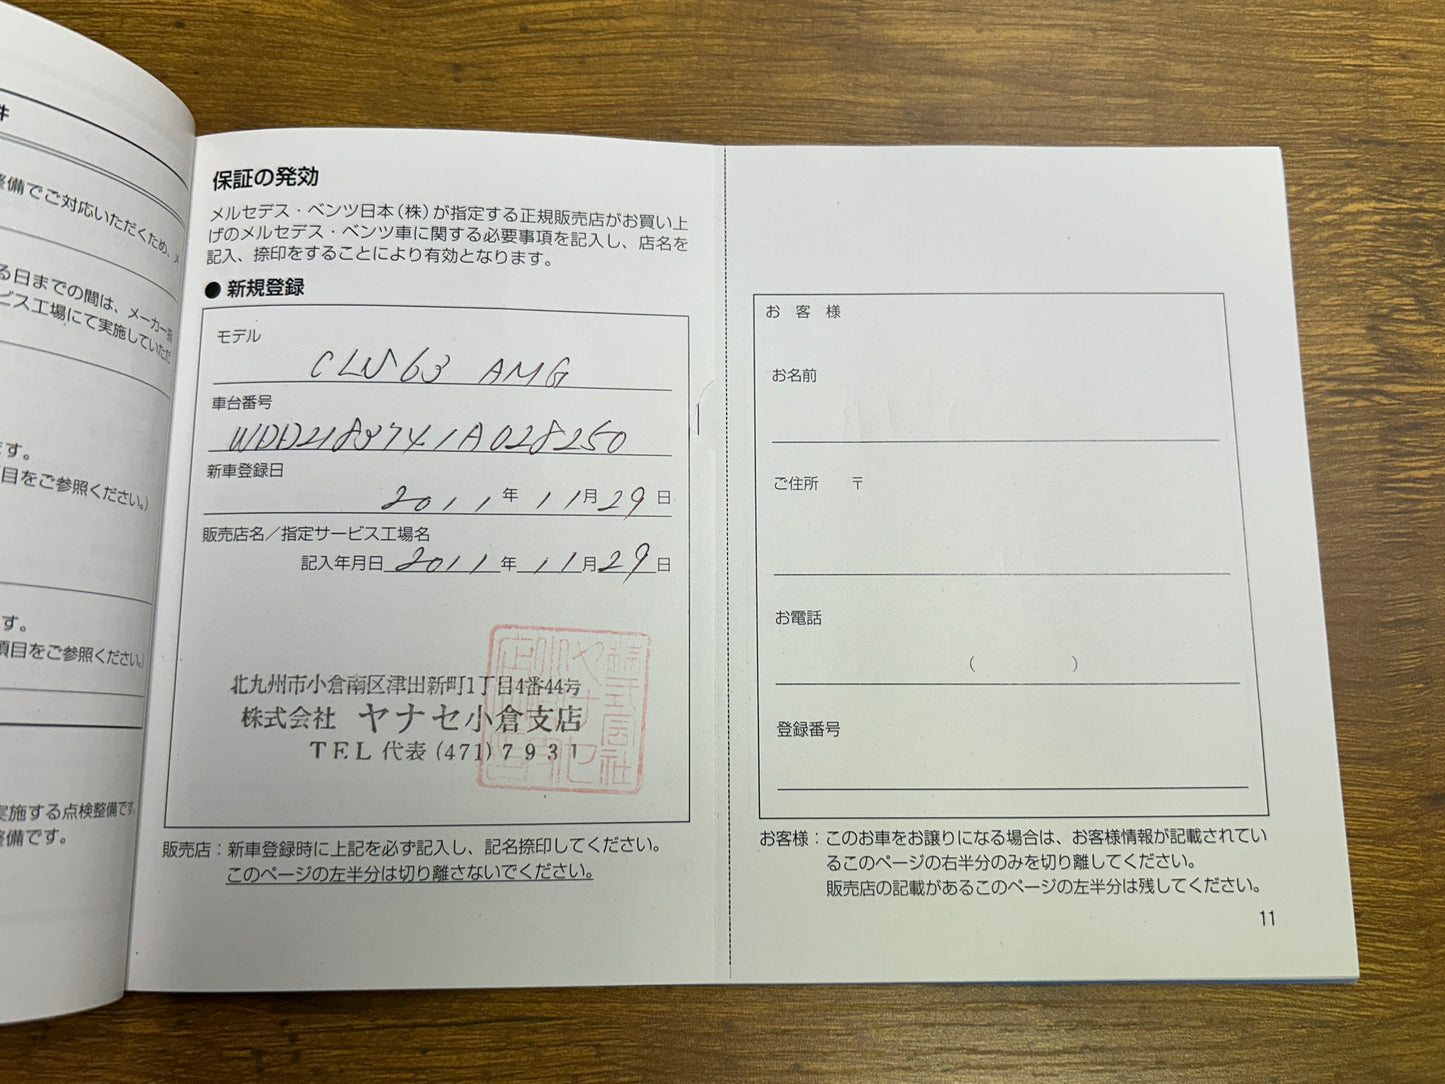 件
整備でご対応いただくため、メ
る日までの間は、メーカー指
ビス工場にて実施していただ
です。
項目をご参照ください。)
す。
項目をご参照ください。)
実施する点検整備です。
整備です。
保証の発効
メルセデス・ベンツ日本(株)が指定する正規販売店がお買い上
げのメルセデス・ベンツ車に関する必要事項を記入し、店名を
記入、捺印をすることにより有効となります。
●新規登録
モデル
CLS 63 AMG
車台番号
WDD2183741A028250
新車登録日
2011年11月29日
販売店名/指定サービス工場名
記入年月日 2011年11月29日
北九州市小倉南区津田新町1丁目4番44号
株式会社 ヤナセ小倉支店
TEL 代表 (471) 7931
販売店:新車登録時に上記を必ず記入し、記名捺印してください。
このページの左半分は切り離さないでください。
お客様
お名前
ご住所 〒
お電話
( )
登録番号
お客様:このお車をお譲りになる場合は、お客様情報が記載されてい
るこのページの右半分のみを切り離してください。
販売店の記載があるこのページの左半分は残してください。
11